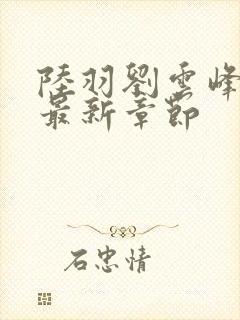 陸羽劉雲峰
最新章節
石忠情